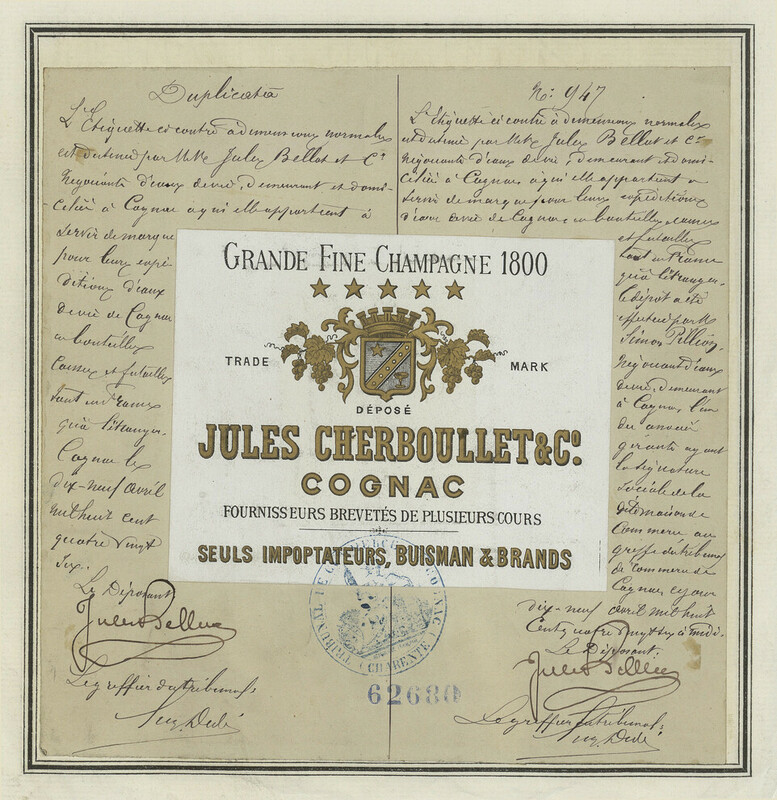 Duplicata
L'Etiquette ci contre à dimensions normales
est destiné par MM. Jules Bellot et Cie
Négociants d'eaux de vie, demeurant et domi-
ciliés à Cognac à qui elle appartient à
servir de marque
pour leurs expé
ditions d'eaux
de vie de Cognac
en bouteilles
Caisses et futailles
tant en France
qu'à l'étranger.
Cognac le
dix-neuf avril
mil huit cent
quatre vingt
six.
Le Déposant
Jules Bellot
Le greffier du tribunal
No: 947
L'Etiquette ci contre à dimensions normales
est destiné par MM. Jules Bellot et Cie
Négociants d'eaux de vie, demeurant et domi-
ciliés à Cognac, à qui elle appartient à
servir de marque pour leurs expéditions
d'eaux de vie de Cognac en bouteilles, caisses
et futailles
tant en France
qu'à l'étranger.
le dépôt a été
effectué par M.
Simon
Négociant d'eaux
de vie, demeurant
à Cognac, l'un
des associés
gérants ayant
la signature
sociale de la
dite maison de
Commerce au
greffe du tribunal
de Commerce de
Cognac ce jour
dix-neuf avril mil huit
Cent quatre vingt six à midi.
Le Déposant:
Jules Bellot
Le greffier du tribunal
GRANDE FINE CHAMPAGNE 1800
TRADE MARK
DÉPOSÉ
JULES CHERBOULLET & Co.
COGNAC
FOURNISSEURS BREVETÉS DE PLUSIEURS COURS
SEULS IMPOPTATEURS, BUISMAN & BRANDS
TRIBUNAL DE COMMERCE DE COGNAC
(CHARENTE)
62680